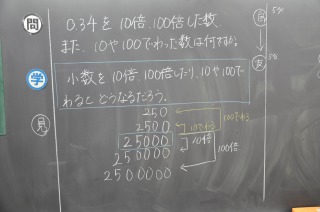 問
0.34を10倍、100倍した数、
また、10や100でわった数は何ですか。
学
小数を10倍、100倍したり、10や100で
わると どうなるだろう。
見
250
2500
25000
250000
2500000
10でわる
100でわる
10倍
100倍
5分
友
5分